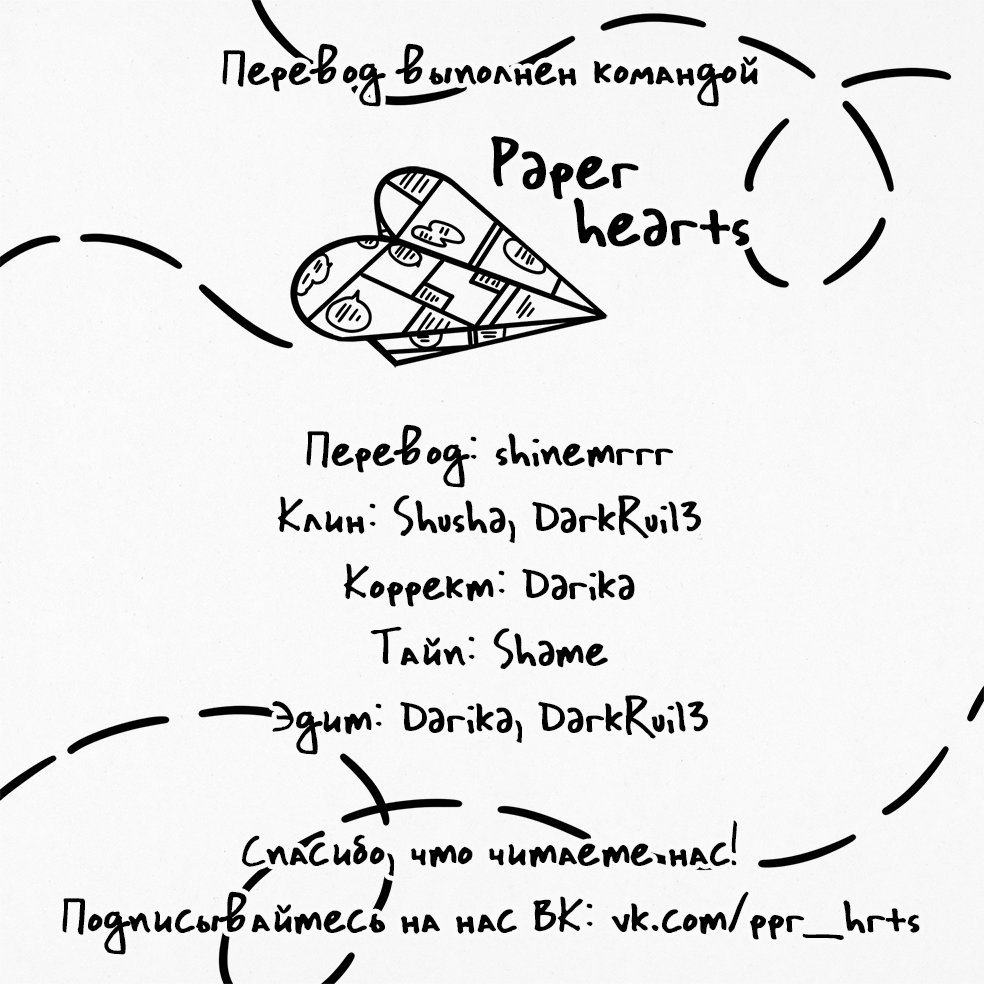 Перевод выполнен командой
Paper
hearts
Перевод: shinemrrr
Клин: Shusha, DarkRui13
Коррект: Darika
Тайп: Shame
Эдит: Darika, DarkRui13
Спасибо, что читаете нас!
Подписывайтесь на нас ВК: vk.com/ppr_hrts